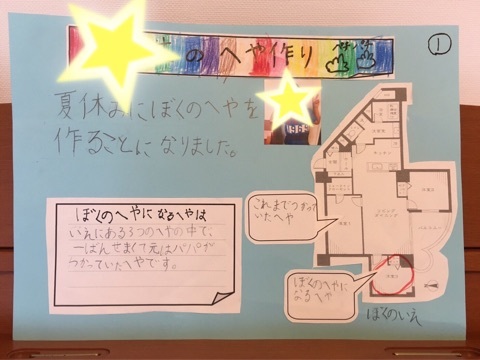 のへや作り
①
夏休みにぼくのへやを
作ることになりました。
ぼくのへやになるへやは
いえにある3つのへやの中で、
一ばんせまくて元はパパが
つかっていたへやです。
これまでつかって
いたへや
ぼくのへやに
なるへや
ぼくのいえ